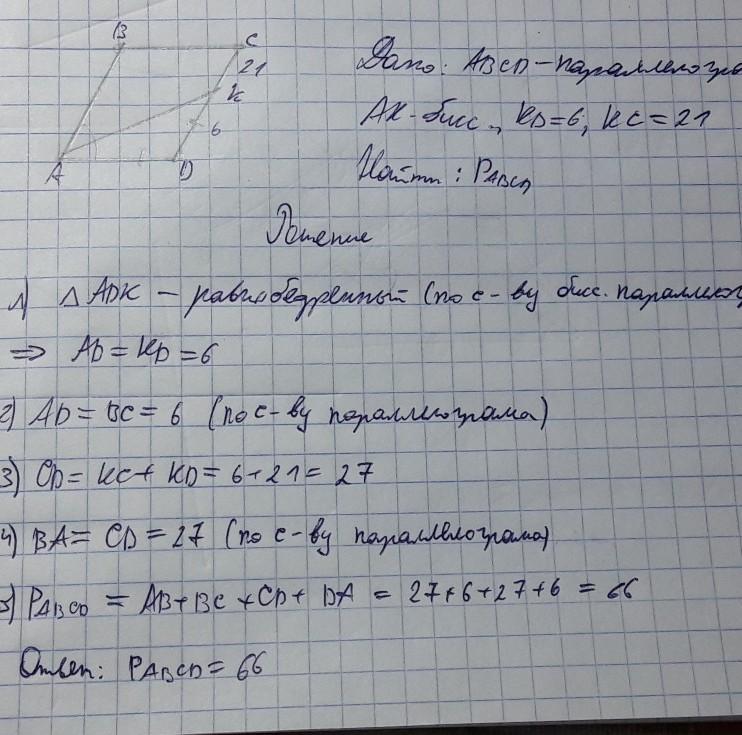 B
C
21
K
6
A
D
Дано: ABCD-параллелогра
AK-бисс., KD=6, KC=21
Найти: PABCD
Решение
1) △ ADK — равнобедренный (по с-ву бисс. параллелог
=> AD = KD = 6
2) AD = BC = 6 (по с-ву параллелограма)
3) CD = KC + KD = 6+21 = 27
4) BA = CD = 27 (по с-ву параллелограма)
5) PABCD = AB+BC+CD+DA = 27+6+27+6 = 66
Ответ: PABCD = 66